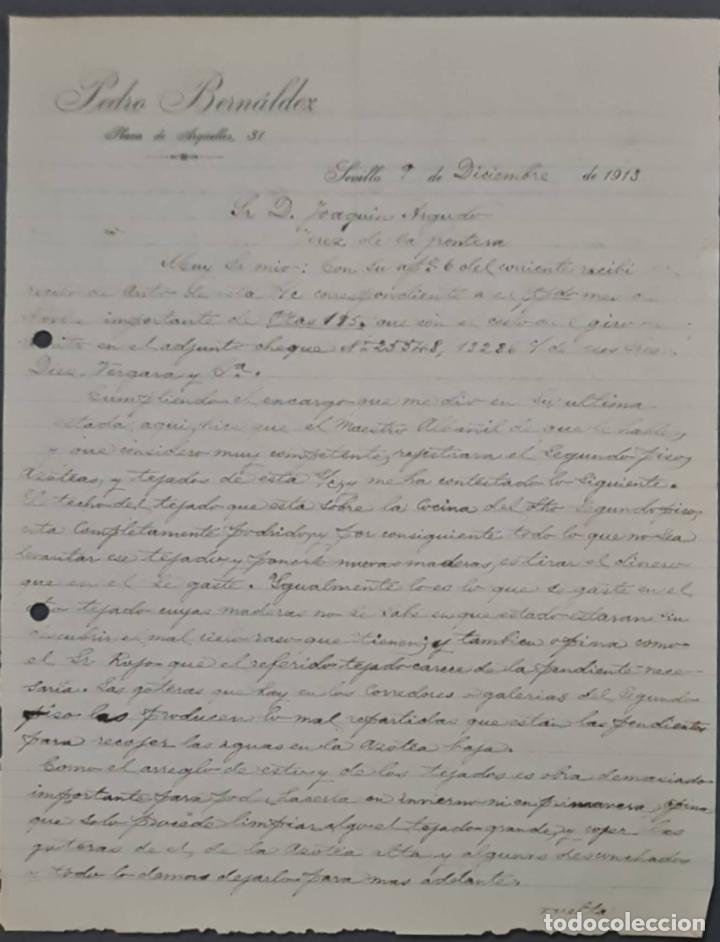 Pedro Bernáldez
Plaza de Argüelles, 31
Sevilla 9 de Diciembre de 1913
Sr D. Joaquin Argudo
Jerez de la frontera
Muy Sr mio: Con su apda 6 del corriente recibi
recibo de de esta c/c correspondiente a el ppdo mes
importante de Ptas 195, que con el costo del giro
en el adjunto cheque No 25548, 13226 de
Diez Vergara y Ca.
Cumpliendo el encargo que me dio en su ultima
estada aqui, hice que el Maestro Albañil de que le hable,
y que considero muy competente, registrara el Segundo piso,
Azoteas, y tejados de esta c/c y me ha contestado lo siguiente.
El techo del tejado que esta sobre la Cocina del dho Segundo piso,
esta Completamente podrido, y por consiguiente todo lo que no sea
levantar ese tejado y ponerle nuevas maderas, es tirar el dinero
que en el se gaste. Igualmente lo es lo que se gaste en el
otro tejado cuyas maderas no se sabe en que estado estaran sin
descubrir el mal cielo raso que tienen; y tambien opina como
el Sr Rojo que el referido tejado carece de la pendiente nece-
saria. Las goteras que hay en los corredores o galerias del Segundo
piso las producen lo mal repartidas que están las pendientes
para recojer las aguas en la Azotea baja.
Como el arreglo de esto y de los tejados es obra demasiado
importante para hacerla en invierno ni en primavera, opina
que solo procede limpiar algo el tejado grande, y cojer las
goteras de el, de la Azotea alta y algunos desconchados
y todo lo demas dejarlo para mas adelante.
vuelta
todocoleccion
todocoleccion.net